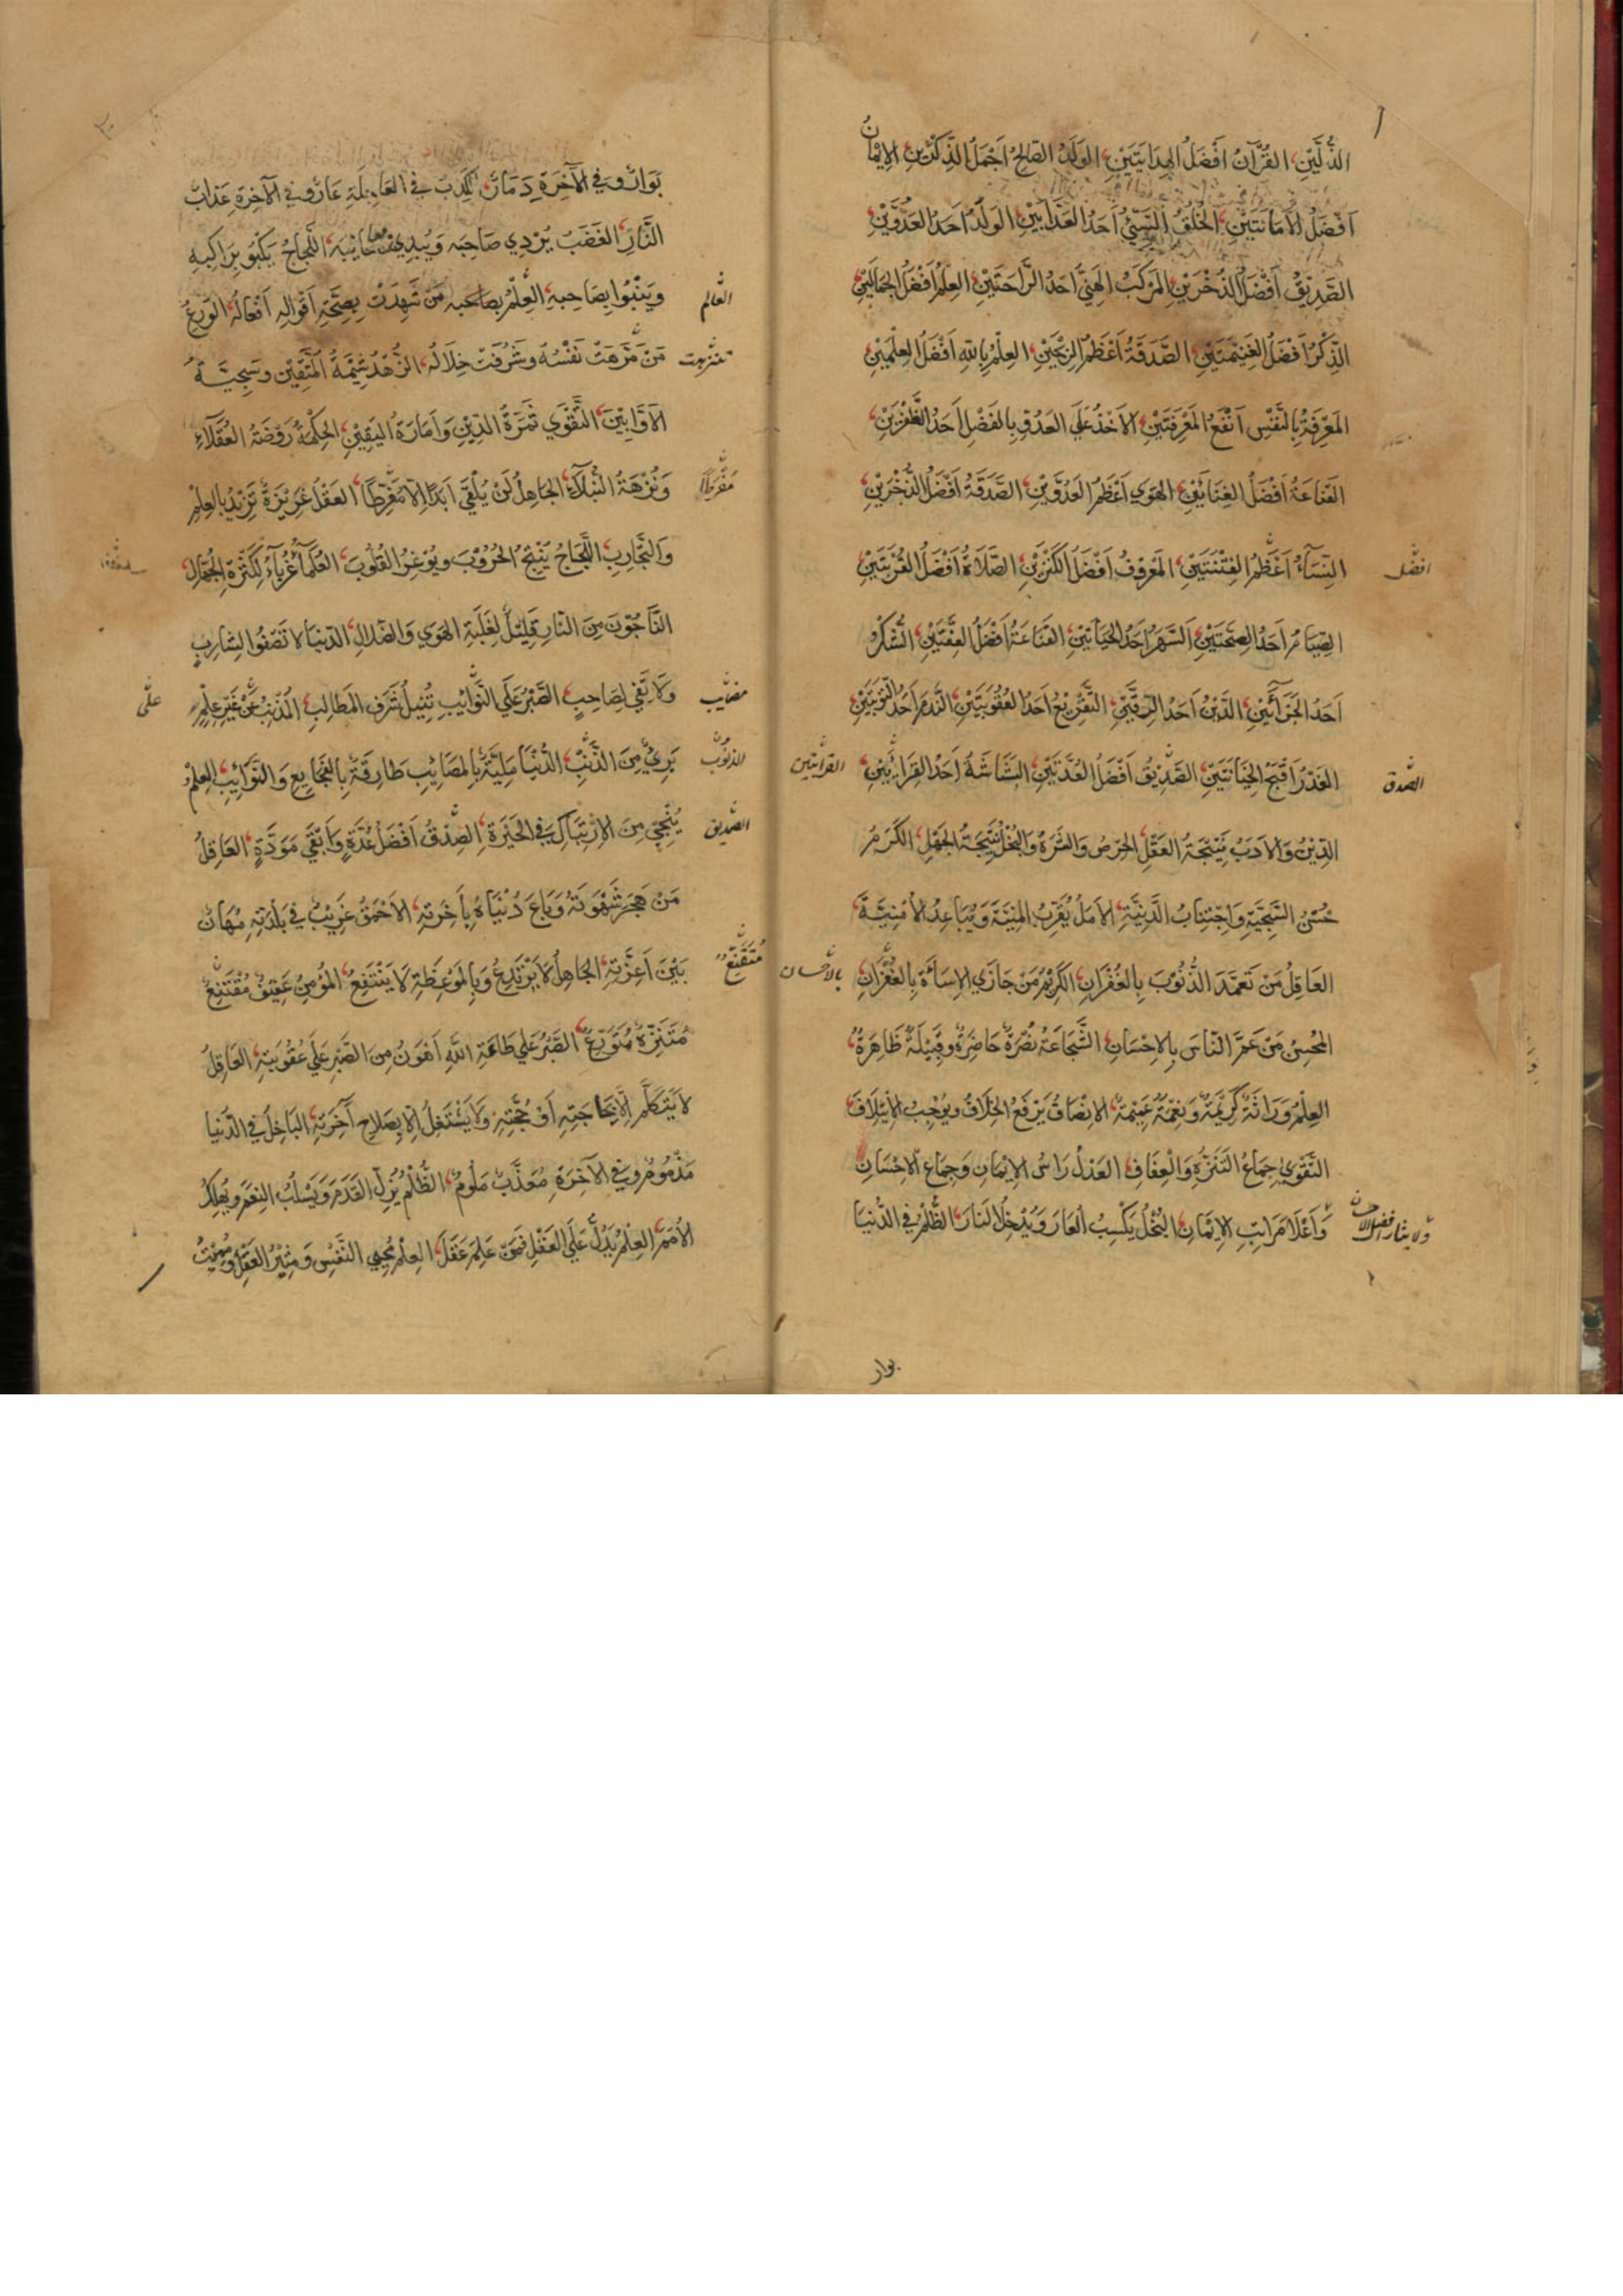 الذُّلَّيْنِ، القُرْآنُ اَفْضَلُ الهِدَايَتَيْنِ، الوَلَدُ الصَّالِحُ اَجْمَلُ الذِّكْرَيْنِ، الاِيْمَانُ
اَفْضَلُ الْاَمَانَتَيْنِ، الخُلُقُ السَّيِّئُ اَحَدُ العَذَابَيْنِ، الوَلَدُ اَحَدُ العَدُوَّيْنِ،
الصَّدِيْقُ اَفْضَلُ الذُّخْرَيْنِ، المَرْكَبُ الهَنِيُّ اَحَدُ الرَّاحَتَيْنِ، العِلْمُ اَفْضَلُ الجَمَالَيْنِ،
الذِّكْرُ اَفْضَلُ الغَنِيْمَتَيْنِ، الصَّدَقَةُ اَعْظَمُ الرِّبْحَيْنِ، العِلْمُ بِاللهِ اَفْضَلُ العِلْمَيْنِ،
المَعْرِفَةُ بِالنَّفْسِ اَنْفَعُ المَعْرِفَتَيْنِ، الاَخْذُ عَلَي العَدُوِّ بِالفَضْلِ اَحَدُ الظَّفَرَيْنِ،
القَنَاعَةُ اَفْضَلُ الغِنَائَيْنِ، الهَوَي اَعْظَمُ العَدُوَّيْنِ، الصَّدَقَةُ اَفْضَلُ الذُّخْرَيْنِ،
النِّسَآءُ اَعْظَمُ الفِتْنَتَيْنِ، المَعْرُوفُ اَفْضَلُ الكَنْزَيْنِ، الصَّلَاةُ اَفْضَلُ القُرْبَتَيْنِ،
افضل
الصِّيَامُ اَحَدُ الصِّحَّتَيْنِ، السَّهَرُ اَحَدُ الحَيَاتَيْنِ، القَنَاعَةُ اَفْضَلُ العِفَّتَيْنِ، الشُّكْرُ
اَحَدُ الجَزَآئَيْنِ، الدَّيْنُ اَحَدُ الرِّقَّيْنِ، التَّقْرِيْعُ اَحَدُ العُقُوبَتَيْنِ، النَّدَمُ اَحَدُ التَّوْبَتَيْنِ،
الغَدْرُ اَقْبَحُ الخِيَانَتَيْنِ، الصَّدِيْقُ اَفْضَلُ العُدَّتَيْنِ، البَشَاشَةُ اَحَدُ القِرَاءَيْنِ،
الصدق
القرائتين
الدِّيْنُ وَالاَدَبُ نَتِيْجَةُ العَقْلِ، الحِرْصُ وَالشَّرَهُ وَالبُخْلُ نَتِيْجَةُ الجَهْلِ، الكَرَمُ
حُسْنُ السَّجِيَّةِ وَاجْتِنَابُ الدَّنِيَّةِ، الاَمَلُ يُقَرِّبُ المَنِيَّةَ وَيُبَاعِدُ الاُمْنِيَّةَ،
العَاقِلُ مَنْ تَعَمَّدَ الذُّنُوْبَ بِالغُفْرَانِ، الكَرِيْمُ مَنْ جَازَي الاِسَاءَةَ بِالغُفْرَانِ،
بالاحسان
المُحْسِنُ مَنْ عَمَّ النَّاسَ بِالاِحْسَانِ، الشَّجَاعَةُ نُصْرَةٌ حَاضِرَةٌ وَفَضِيْلَةٌ ظَاهِرَةٌ،
العِلْمُ وَرَاثَةٌ كَرِيْمَةٌ وَنِعْمَةٌ عَمِيْمَةٌ، الاِنْصَافُ يَرْفَعُ الخِلَافَ وَيُوْجِبُ الاِيْتِلَافَ،
التَّقْوَي جِمَاعُ التَّنَزُّهِ وَالْعِفَافِ، العَدْلُ رَاسُ الاِيْمَانِ وَجِمَاعُ الاِحْسَانِ
وَاَعْلَا مَرَاتِبِ الاِيْمَانِ، البُخْلُ يَكْسِبُ العَارَ وَيُدْخِلُ النَّارَ، الظُّلْمُ فِي الدُّنْيَا
بوار
بَوَارٌ وَفِي الآخِرَةِ دَمَارٌ، الكِذْبُ فِي العَاجِلَةِ عَارٌ وَفِي الآخِرَةِ عَذَابُ
النَّارِ، الغَضَبُ يُرْدِي صَاحِبَهُ وَيُبْدِي مَعَايِبَهُ، اللَّجَاجُ يَكْبُو بِرَاكِبِهِ
وَيَنْبُوا بِصَاحِبِهِ، العِلْمُ بِصَاحِبِهِ مَنْ شَهِدَتْ بِصِحَّةِ اَقْوَالِهِ اَفْعَالُهُ، الوَرِعُ
العالم
مَنْ نَزُهَتْ نَفْسُهُ وَشَرُفَتْ خِلَالُهُ، الزُّهْدُ شِيْمَةُ المُتَّقِيْنَ وَسَجِيَّةُ
تنزهت
الاَوَّابِيْنَ، التَّقْوَي ثَمَرَةُ الدِّيْنِ وَاَمَارَةُ اليَقِيْنِ، الحِكْمَةُ رَوْضَةُ العُقَلَآءِ
وَنُزْهَةُ النُّبَلَآءِ، الجَاهِلُ لَنْ يُلْقَي اَبَدًا اِلَّا مُفْرِطًا، العَقْلُ غَرِيْزَةٌ تَزِيْدُ بِالعِلْمِ
مفرطا
وَالتَّجَارِبِ، اللَّجَاجُ يُنْتِجُ الحُرُوْبَ وَيُوْغِرُ القُلُوْبَ، العُلَمَآءُ غُرَبَآءُ لِكَثْرَةِ الجُهَّالِ،
النَّاجُوْنَ مِنَ النَّارِ قَلِيْلٌ لِغَلَبَةِ الهَوَي وَالضَّلَالِ، الدُّنْيَا لَا تَصْفُوا لِشَارِبٍ
وَلَا تَفِي لِصَاحِبٍ، الصَّبْرُ عَلَي النَّوَائِبِ يُنِيْلُ شَرَفَ المَطَالِبِ، المُذْنِبُ عَنْ غَيْرِ عِلْمٍ
علي
بَرِيْءٌ مِنَ الذَّنْبِ، الدُّنْيَا مَلِيَّةٌ بِالمَصَائِبِ طَارِقَةٌ بِالفَجَائِعِ وَالنَّوَائِبِ، العِلْمُ
الذنوب
يُنْجِي مِنَ الاِرْتِبَاكِ فِي الحَيْرَةِ، الصِّدْقُ اَفْضَلُ عُدَّةٍ وَاَبْقَي مَوَدَّةٍ، العَاقِلُ
الصديق
مَنْ هَجَرَ شَهْوَتَهُ وَبَاعَ دُنْيَاهُ بِآخِرَتِهِ، الاَحْمَقُ غَرِيْبٌ فِي بَلْدَتِهِ مُهَانٌ
بَيْنَ اَعِزَّتِهِ، الجَاهِلُ لَا يَرْتَدِعُ وَبِالمَوْعِظَةِ لَا يَنْتَفِعُ، المُؤْمِنُ عَفِيْفٌ مُقْتَنِعٌ
متقنع
مُتَنَزِّهٌ مُتَوَرِّعٌ، الصَّبْرُ عَلَي طَاعَةِ اللَّهِ اَهْوَنُ مِنَ الصَّبْرِ عَلَي عُقُوْبَتِهِ، العَاقِلُ
لَا يَتَكَلَّمُ اِلَّا بِحَاجَتِهِ اَوْ حُجَّتِهِ وَلَا يَشْتَغِلُ اِلَّا بِصَلَاحِ آخِرَتِهِ، البَاخِلُ فِي الدُّنْيَا
مَذْمُوْمٌ وَفِي الآخِرَةِ مُعَذَّبٌ مَلُوْمٌ، الظُّلْمُ يُزِلُّ القَدَمَ وَيَسْلُبُ النِّعَمَ وَيُهْلِكُ
الاُمَمَ، العِلْمُ يَدُلُّ عَلَي العَقْلِ فَمَنْ عَلِمَ عَقَلَ، العِلْمُ مُحْيِي النَّفْسِ وَمُنِيْرُ العَقْلِ وَمُمِيْتُ